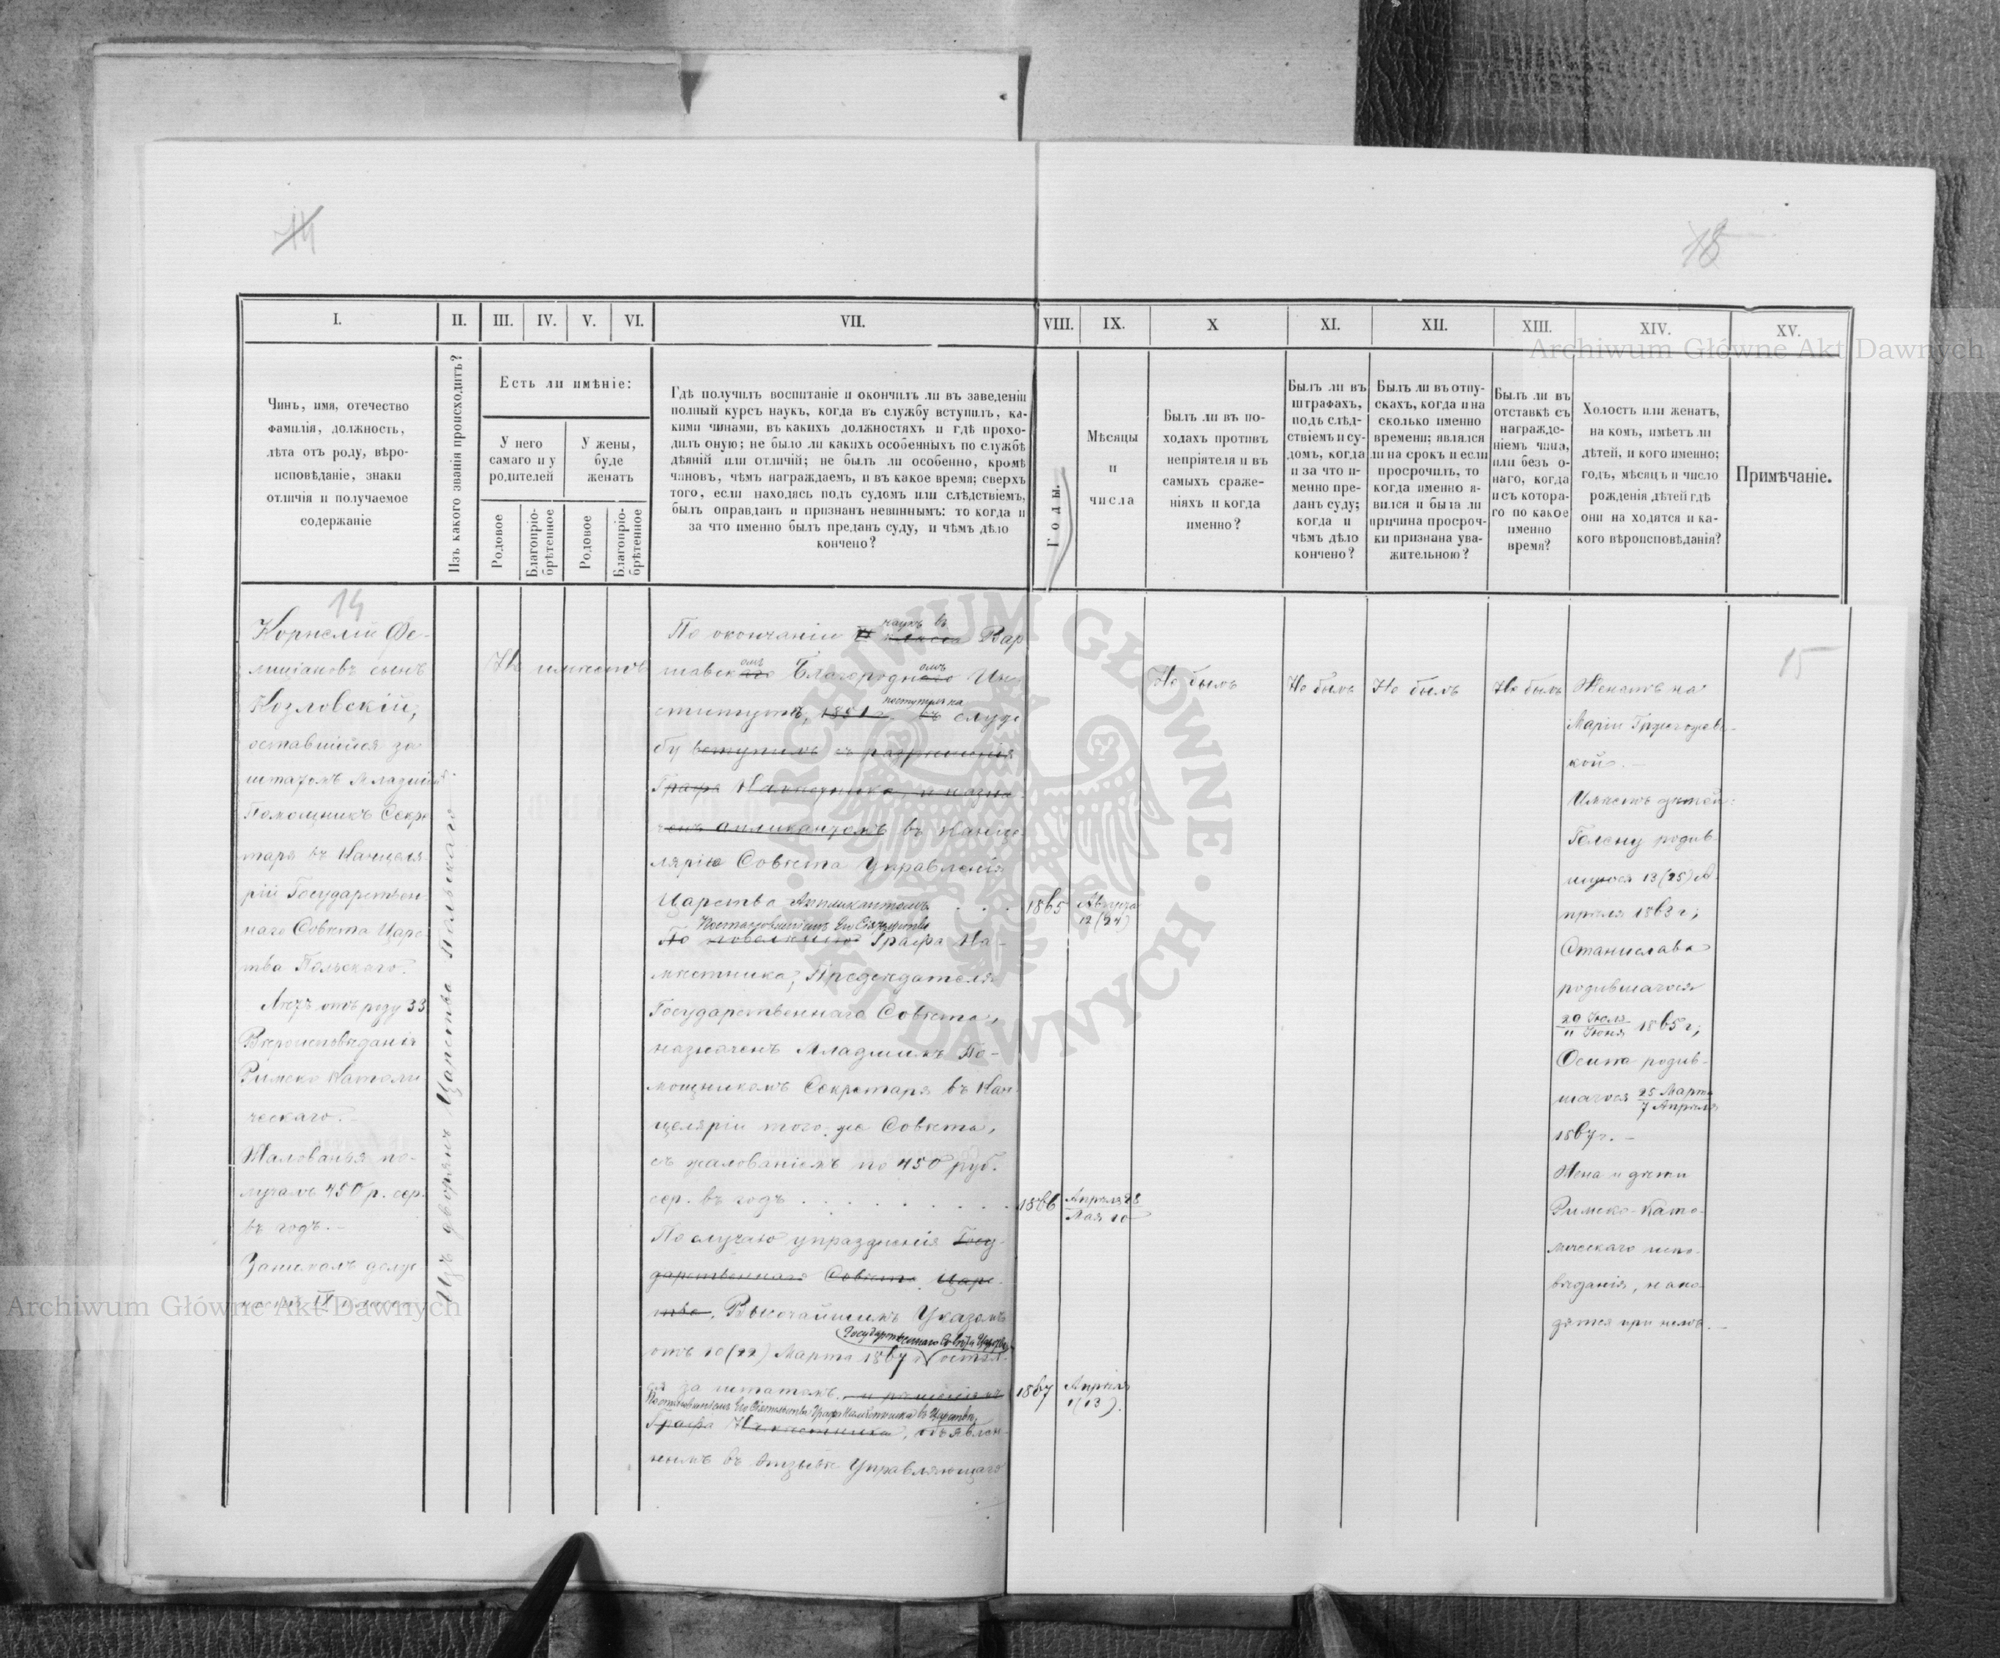 14
15
I.
II.
III.
IV.
V.
VI.
VII.
VIII.
IX.
X
XI.
XII.
XIII.
XIV.
XV.
Чинъ, имя, отечество
фамилія, должность,
лѣта отъ роду, вѣро-
исповѣданіе, знаки
отличія и получаемое
содержаніе
Изъ какого званія происходитъ?
Есть ли имѣніе:
У него
самаго и у
родителей
У жены,
буде
женатъ
Родовое
Благопріо-
брѣтенное
Родовое
Благопріо-
брѣтенное
Гдѣ получилъ воспитаніе и окончилъ ли въ заведеніи
полный курсъ наукъ, когда въ службу вступилъ, ка-
кими чинами, въ какихъ должностяхъ и гдѣ прохо-
дилъ оную; не было ли какихъ особенныхъ по службѣ
дѣяній или отличій; не былъ ли особенно, кромѣ
чиновъ, чѣмъ награждаемъ, и въ какое время; сверхъ
того, если находясь подъ судомъ или слѣдствіемъ,
былъ оправданъ и признанъ невиннымъ: то когда и
за что именно былъ преданъ суду, и чѣмъ дѣло
кончено?
Годы.
Мѣсяцы
и
числа
Былъ ли въ по-
ходахъ противъ
непріятеля и въ
самыхъ сраже-
ніяхъ и когда
именно?
Былъ ли въ
штрафахъ,
подъ слѣд-
ствіемъ и су-
домъ, когда
и за что и-
менно пре-
данъ суду;
когда и
чѣмъ дѣло
кончено?
Былъ ли въ отпу-
скахъ, когда и на
сколько именно
времени; являлся
ли на срокъ и если
просрочилъ, то
когда именно я-
вился и была ли
причина просроч-
ки признана ува-
жительною?
Былъ ли въ
отставкѣ съ
награжде-
ніемъ чина,
или безъ о-
наго, когда
и съ котора-
го по какое
именно
время?
Холостъ или женатъ,
на комъ, имѣетъ ли
дѣтей, и кого именно;
годъ, мѣсяцъ и число
рожденія дѣтей гдѣ
они на ходятся и ка-
кого вѣроисповѣданія?
Примѣчаніе.
14
Корнелій Фе-
лиціановъ сынъ
Козловскій,
оставшійся за
штатомъ Младшій
Помощникъ Секре
таря въ Канцеля
ріи Государствен
наго Совѣта Царс
тва Польскаго.
Лѣтъ отъ роду 33
Вѣроисповѣданія
Римско Католи
ческаго.
Жалованья по-
лучалъ 450 р. сер.
въ годъ.
Занималъ долж
ность IX класса
Изъ дворянъ Царства Польскаго
Не имѣетъ
По окончаніи наукъ въ класса Вар
шавскомъ Благородномъ Ин
ститутѣ, 1851 г. поступилъ на съ служ
бу вступилъ съ разрѣшенія
Графа Намѣстника и назна
ченъ аппликантомъ въ Канце
лярію Совѣта Управленія
Царства Аппликантомъ . . .
1865 Августа
12 (24)
Постановленіемъ Его Сіятельства
По повелѣнію Графа На-
мѣстника, Предсѣдателя
Государственнаго Совѣта,
назначенъ Младшимъ По-
мощникомъ Секретаря въ Кан-
целяріи того-же Совѣта,
съ жалованіемъ по 450 руб.
сер. въ годъ . . . . . . .
1866 Апрѣля 28
Мая 10
По случаю упраздненія Госу-
дарственнаго Совѣта Царс
тва, Высочайшимъ Указомъ
Государственнаго Совѣта Царства
отъ 10 (22) Марта 1867 г. остал-
ся за штатомъ
1867 Апрѣля
1 (13).
Его Сіятельства Графа Намѣстника въ Царствѣ,
Графа Намѣстника, объявлен-
нымъ въ отзывѣ Управляющаго
Не былъ
Не былъ
Не былъ
Не былъ
Женатъ на
Маріи
кой.
Имѣетъ дѣтей:
Гелену родив-
шуюся 13 (25) А-
прѣля 1863 г;
Станислава
родившагося
1865 г;
Осипа родив-
шагося 25 Марта
7 Апрѣля
1867 г.
Жена и дѣти
Римско-Като-
лическаго испо-
вѣданія, нахо-
дятся при немъ.
15
Archiwum Główne Akt Dawnych
Archiwum Główne Akt Dawnych
ARCHIWUM GŁÓWNE AKT DAWNYCH